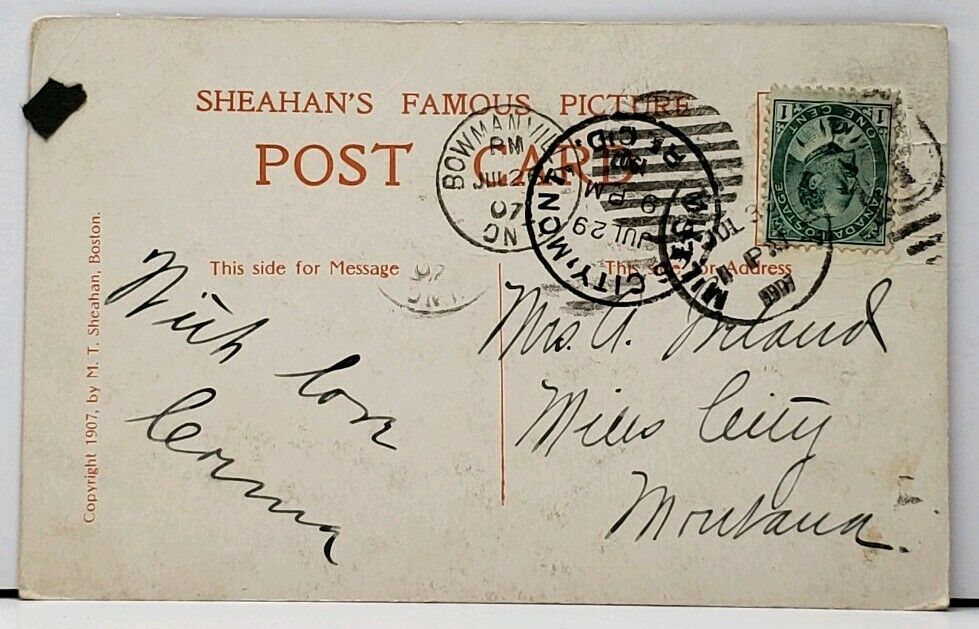 SHEAHAN'S FAMOUS PICTURE
POST CARD
This side for Message
This side for Address
Copyright 1907, by M. T. Sheahan, Boston.
With love
Mrs. A. Ireland
Miles City
Montana.
BOWMANVILLE
PM
JUL 2
07
ON
CITY, MONT.
REC'D.
JUL 29
9 PM
MILES
JUL
PM
07
ON
CANADA POSTAGE
ONE CENT
1
1